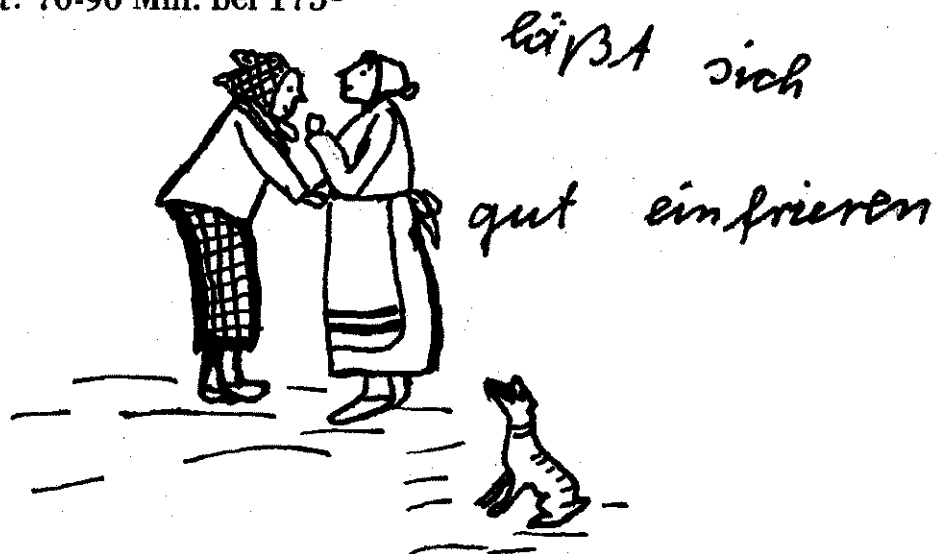 70-90 Min. bei 175°
läßt sich
gut einfrieren